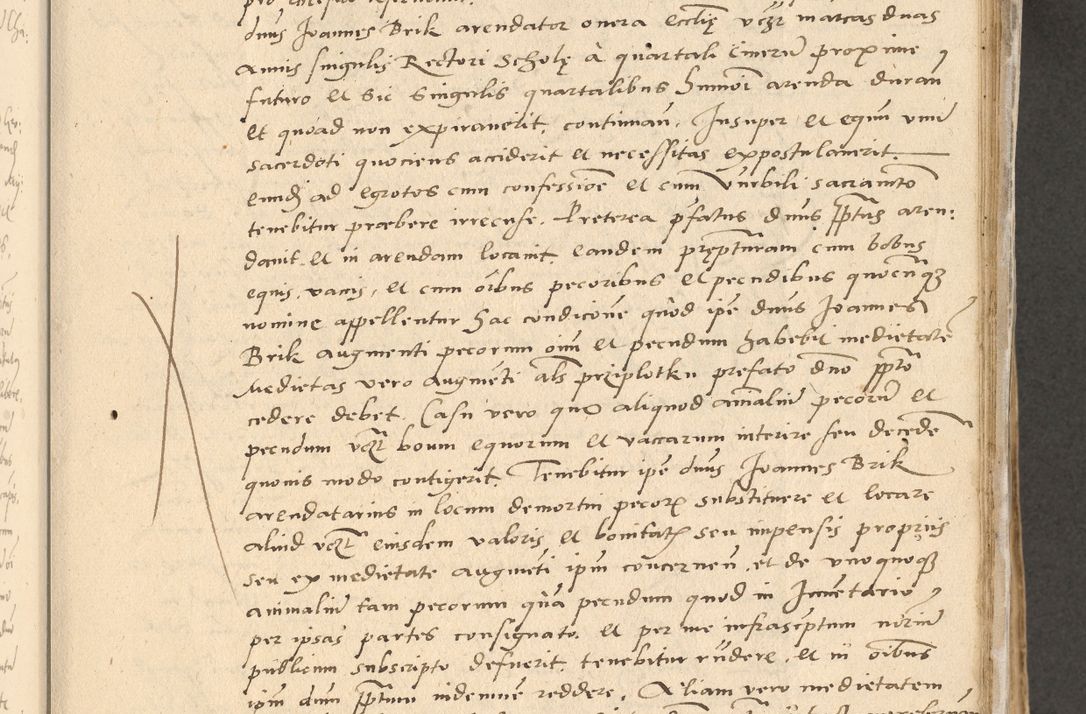 dnus Joannes Brik arendator onera ecclię vczr marcas duas
annis singulis Rectori Scholę à quartali Cinerũ proxime
futuro et sic singulis quartalibus huiusmõi arenda duran
et quoad non expirauerit, continuan. Insuper et equũ vnũ
sacerdoti quociens acciderit et necessitas expostulauerit
eundi ad egrotos cum confessiõe et cum sacramẽto
tenebitur præbere irrecuse. Preterea pfatus dnus pptus aren:
dauit et in arendam locauit eandem pręptturam cum bobus
equis, vaccis, et cum oĩbus pecoribus et pecudibus quocũqz
nomine appellentur hac condicõne quòd ipe dnus Joannes
Brik augmenti pecorum omi et pecudum habebit medietatẽ
Medietas vero augmẽti als przipłotku prefato dno ppto
cedere debet. Casu vero quo aliquod aĩaliũ pecorũ et
pecudum vczr boum equorum et vaccarum interire seu decedẽ
quouis modo contigerit. Tenebitur ipe dnus Joannes Brik
arendatarius in locum demortui pecoris substituere et locare
aliud vczr eiusdem valoris et bonitatis seu impensis propriis
seu ex medietate augmẽti ipm concernen, et de vnoquoqz
animaliũ tam pecorum quã pecudum quod in Inuentario
per ipsas partes consignato et per me infrascptum notariũ
publicum subscripto defuerit, tenebitur rñdere, et in oĩbus
ipm dnum pptum indemnem reddere. Aliam vero medietatem